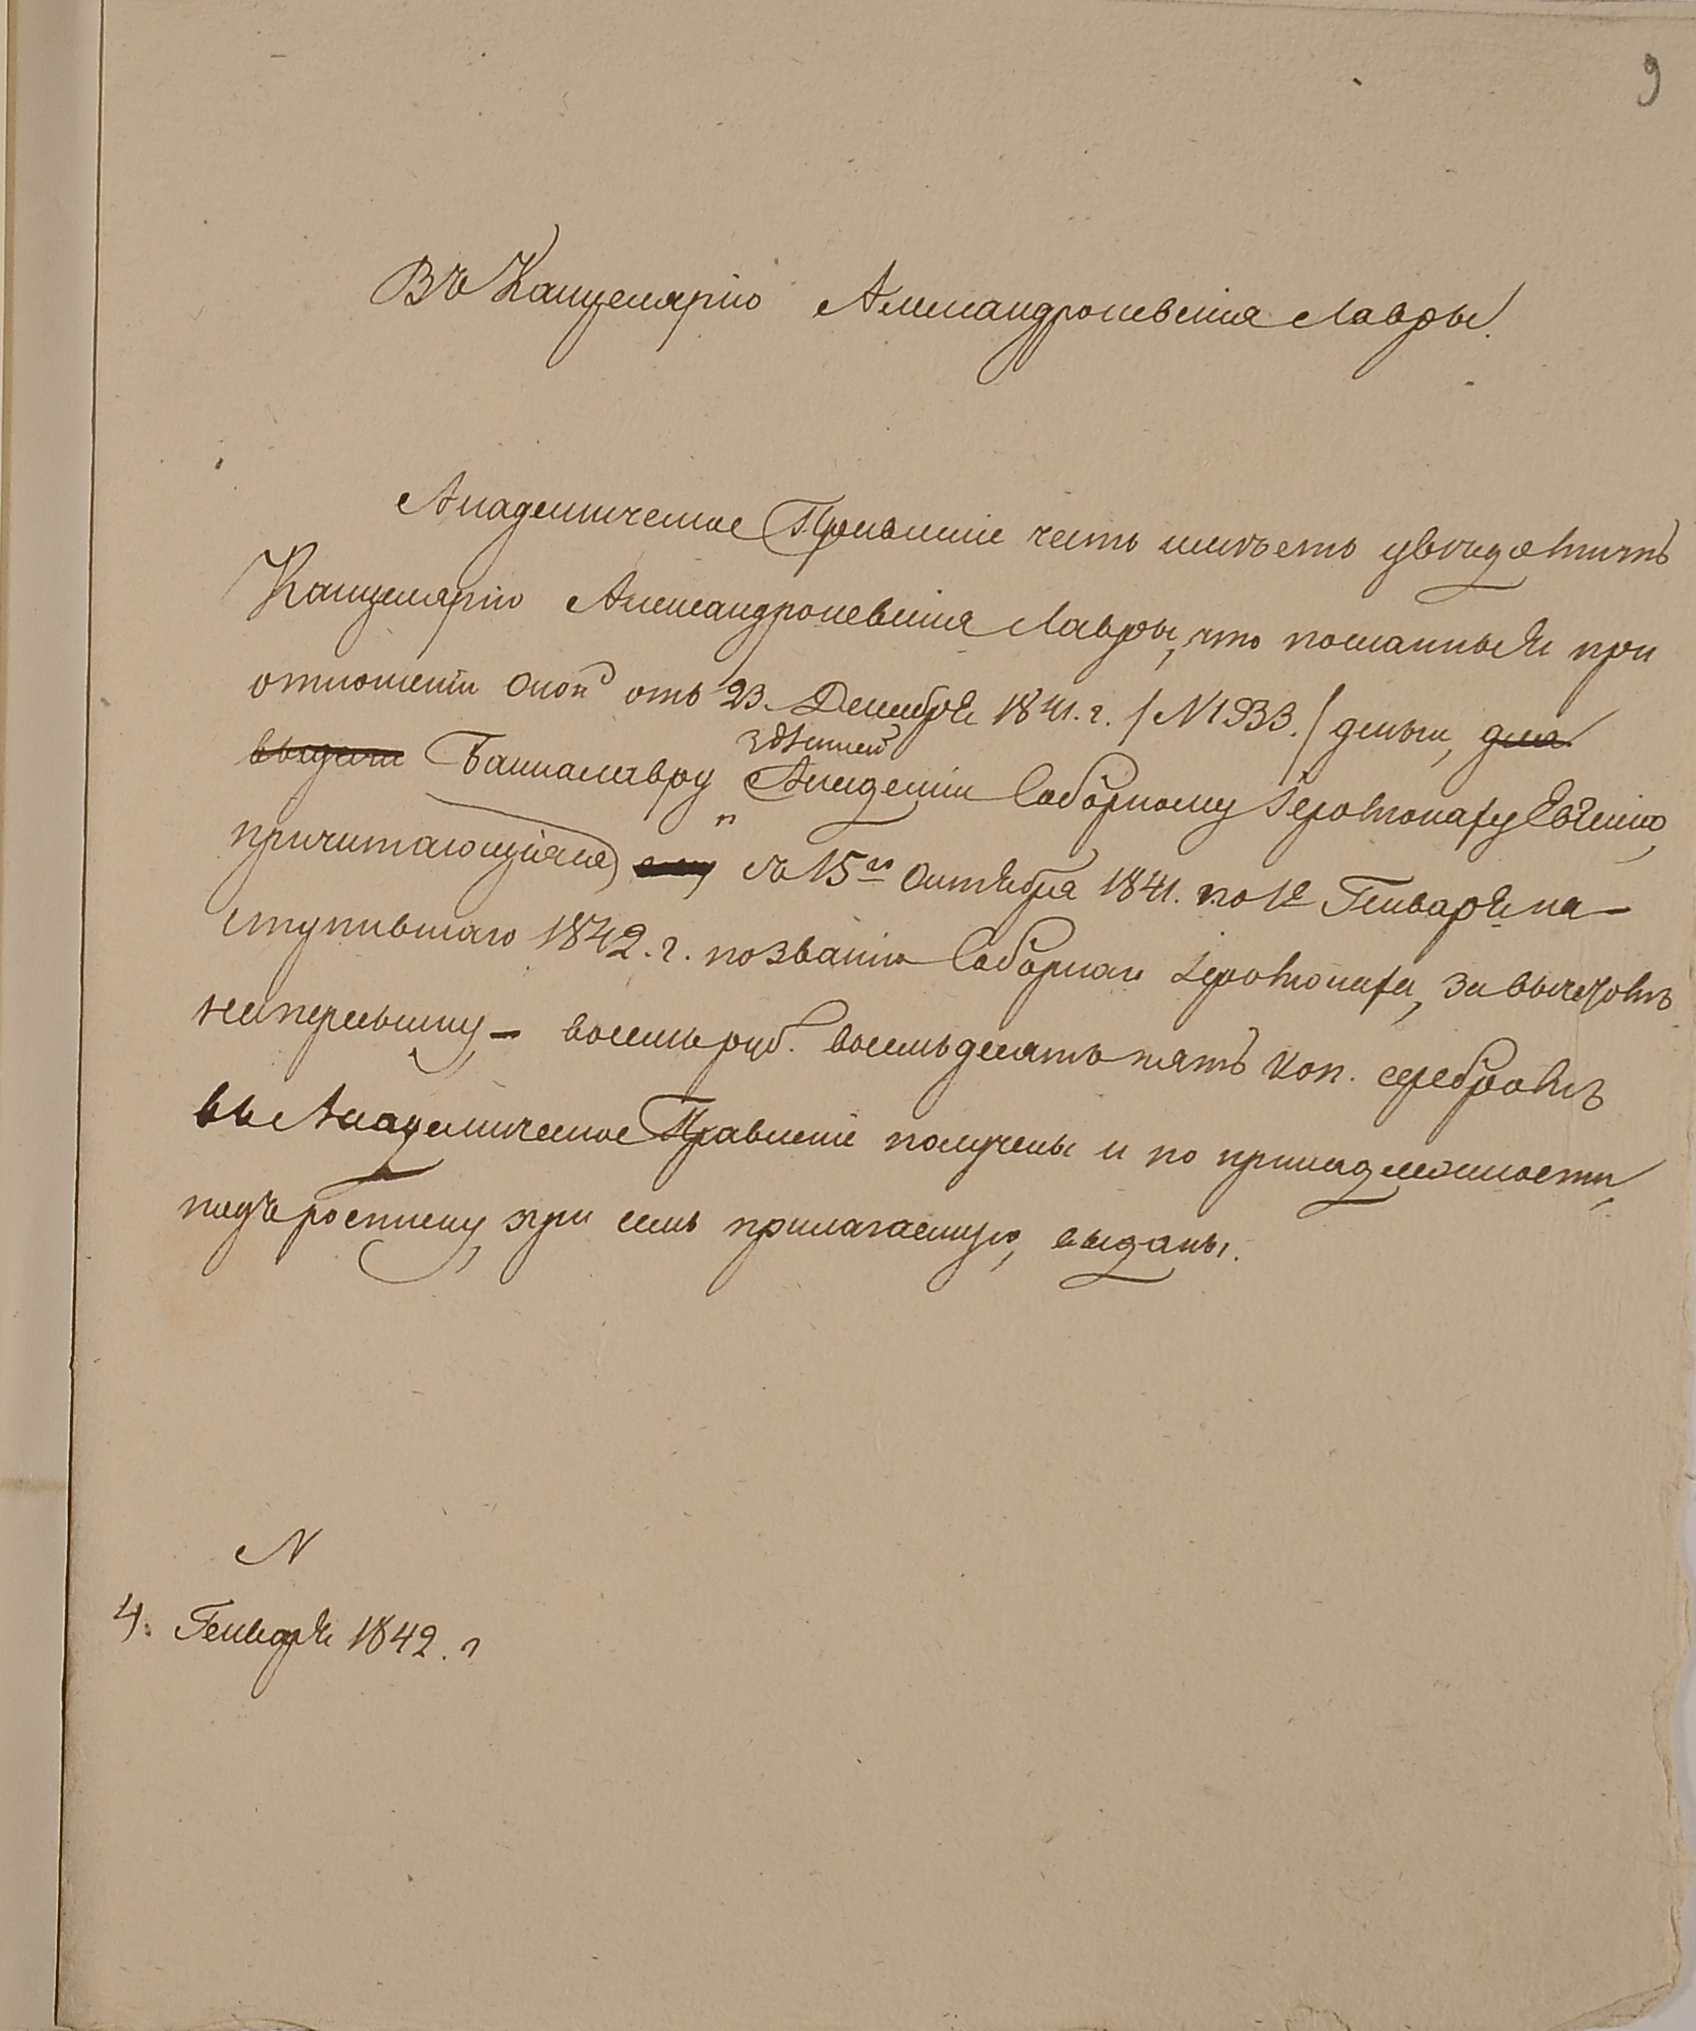 9
Въ Канцелярію Александроневскія Лавры.
Академическое Правленіе честь имѣетъ увѣдомить
Канцелярію Александроневскія Лавры, что посланныя при
отношеніи оной отъ 23. Декабря 1841. г. /N 1933./ деньги, для
выдачи Баккалавру здѣшней Академіи Соборному Іеромонаху Евгенію,
причитающіяся ему съ 15го Октября 1841. по 1е Генваря на-
ступившаго 1842. г. по званію Соборнаго Іеромонаха, за вычетомъ
на пересылку, - восемь руб. восемьдесятъ пять коп. серебромъ
въ Академическое Правленіе получены и по принадлежности,
подъ росписку, при семъ прилагаемую, выданы.
N
4. Генваря 1842. г